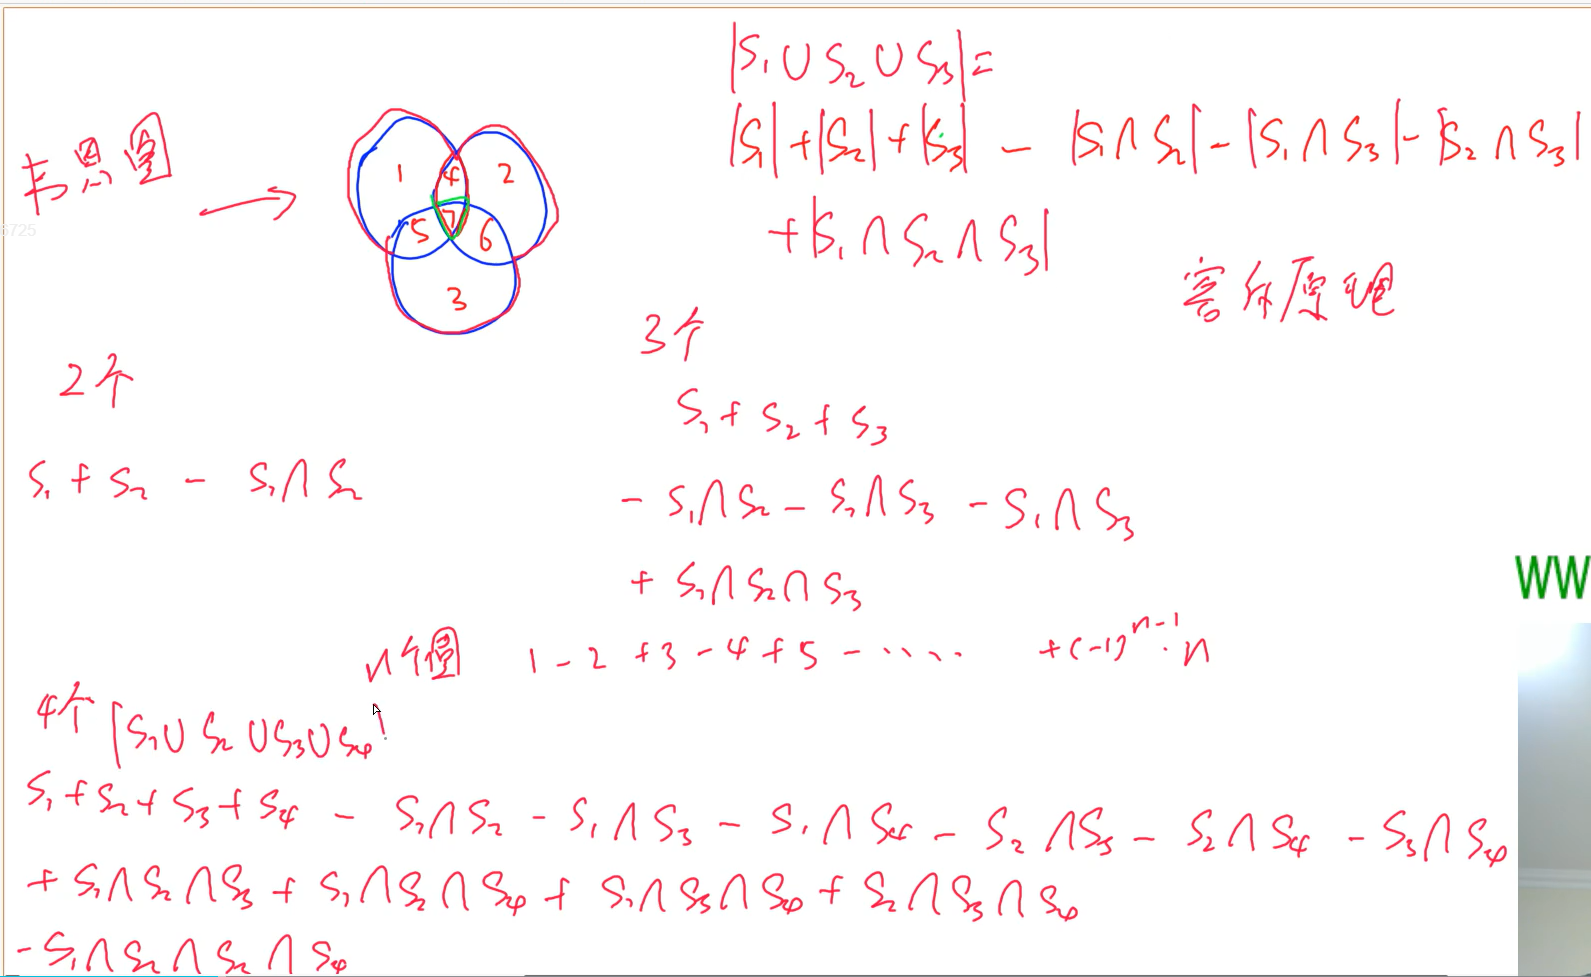 |S₁∪S₂∪S₃|=
|S₁|+|S₂|+|S₃| - |S₁∩S₂|-|S₁∩S₃|-|S₂∩S₃|
+|S₁∩S₂∩S₃|
韦恩图
→
1 4 2
5 7 6
3
6725
容斥原理
2个
S₁+S₂ - S₁∩S₂
3个
S₁+S₂+S₃
-S₁∩S₂-S₂∩S₃-S₁∩S₃
+S₁∩S₂∩S₃
WW
n个圆 1-2+3-4+5-..... +(-1)ⁿ⁻¹·n
4个 |S₁∪S₂∪S₃∪S₄|
S₁+S₂+S₃+S₄ - S₁∩S₂-S₁∩S₃-S₁∩S₄-S₂∩S₃-S₂∩S₄-S₃∩S₄
+S₁∩S₂∩S₃+S₁∩S₂∩S₄+S₁∩S₃∩S₄+S₂∩S₃∩S₄
-S₁∩S₂∩S₂∩S₄